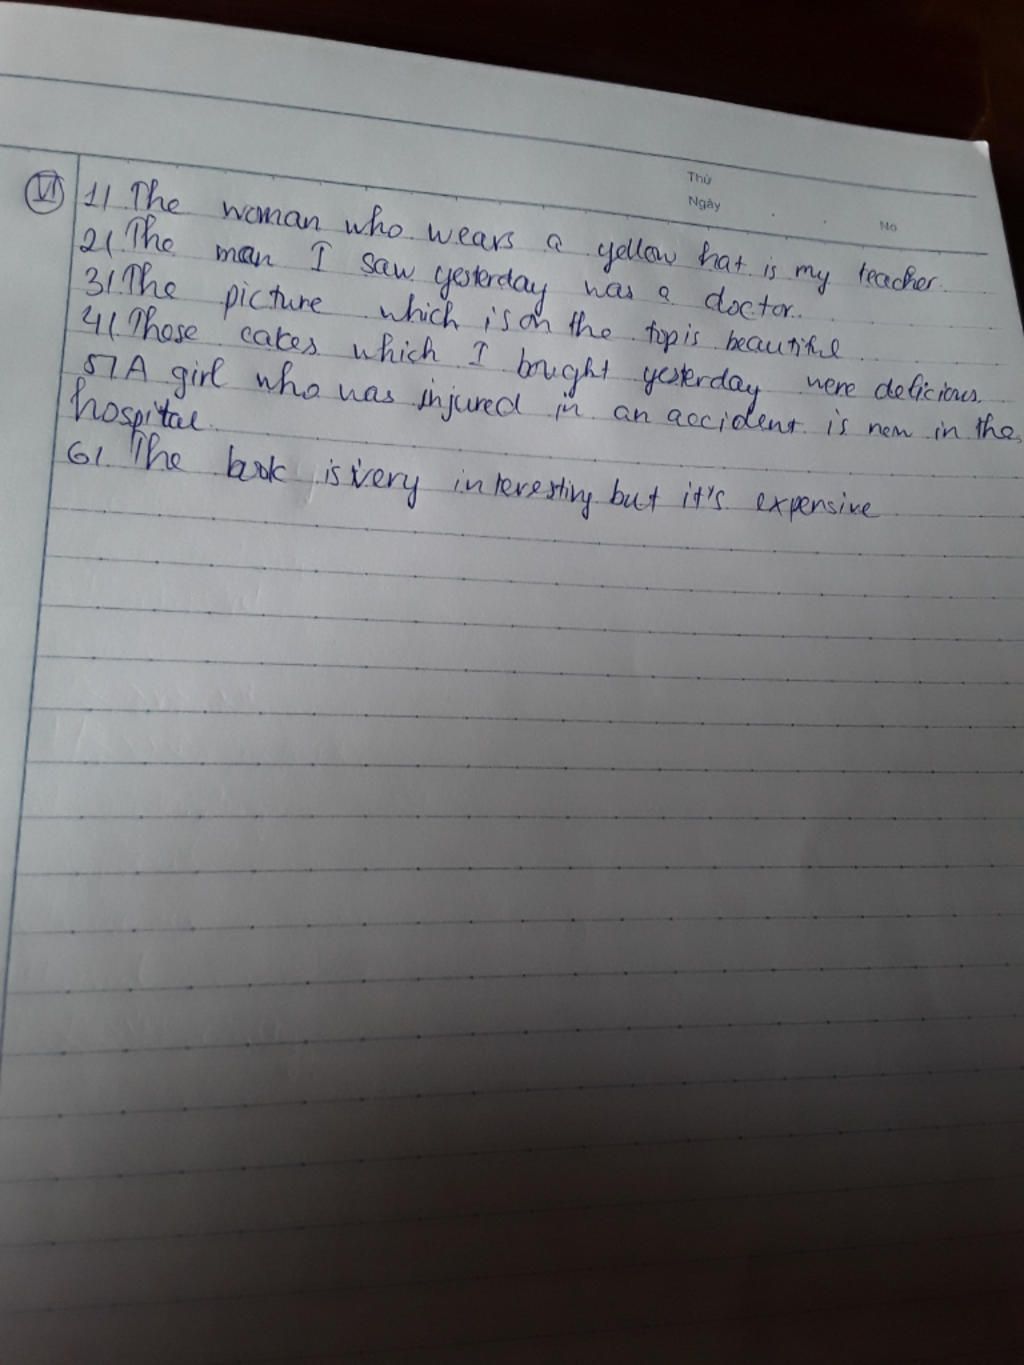 Thứ
Ngày . . No
VI 1/ The woman who wears a yellow hat is my teacher.
2/ The man I saw yesterday was a doctor.
3/ The picture which is on the top is beautiful
4/ Those cakes which I bought yesterday were delicious.
5/ A girl who was injured in an accident is now in the
hospital.
6/ The book is very interesting but it's expensive